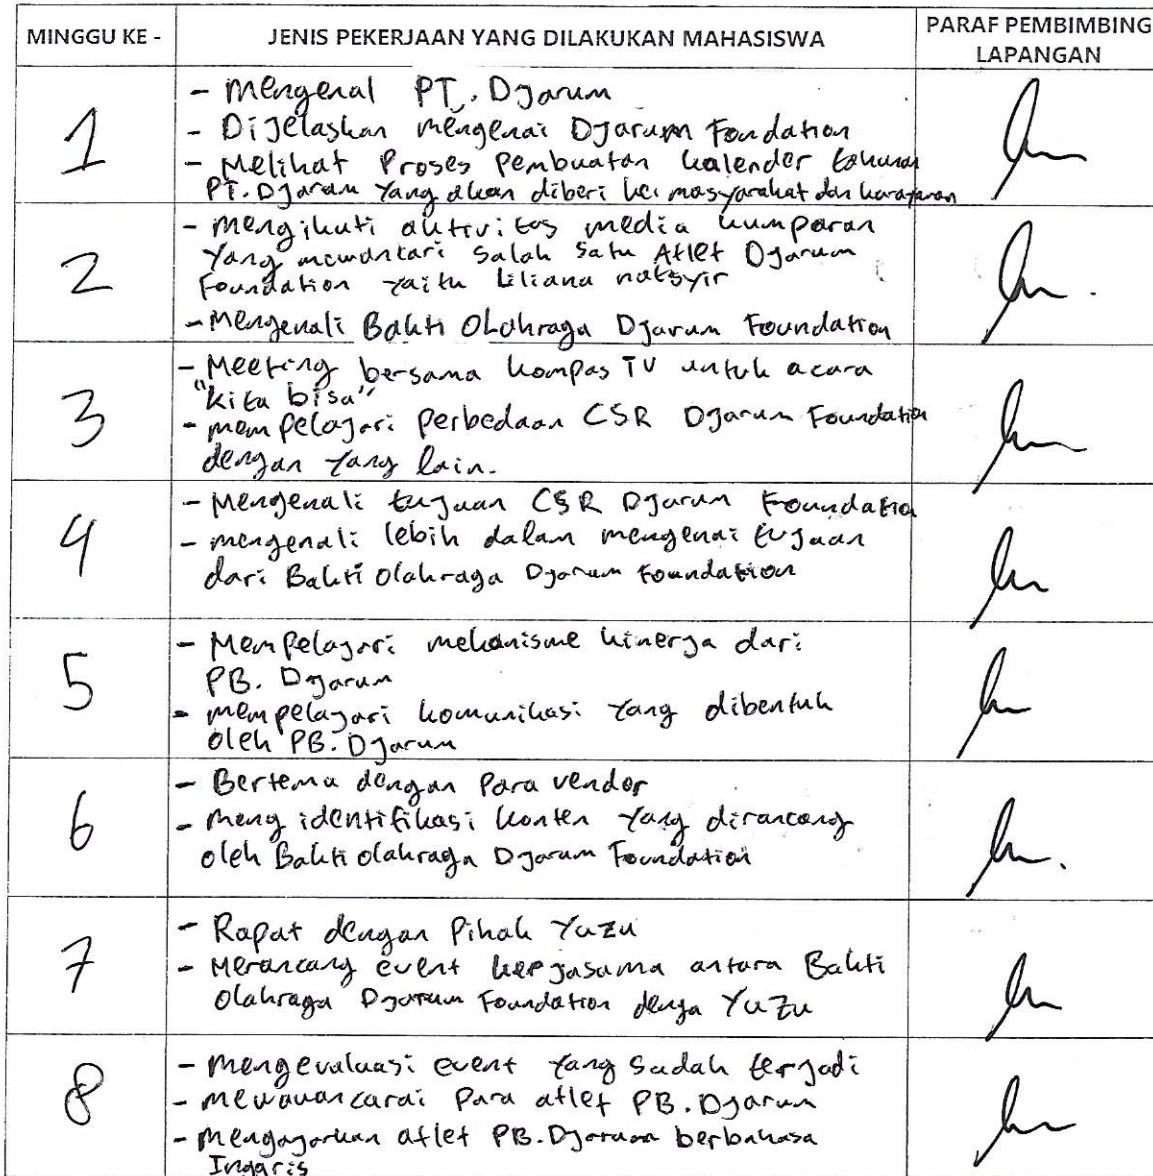 MINGGU KE -
JENIS PEKERJAAN YANG DILAKUKAN MAHASISWA
PARAF PEMBIMBING
LAPANGAN
1
- Mengenal PT. Djarum
- Dijelaskan mengenai Djarum Foundation
- Melihat Proses Pembuatan kalender tahunan
PT. Djarum Yang akan diberi ke masyarakat dan karayawan
2
- Mengikuti aktivitas media kumparan
Yang mewancari Salah Satu Atlet Djarum
Foundation yaitu Liliana natsyir
- Mengenali Bakti Olahraga Djarum Foundation
3
- Meeting bersama kompas TV untuk acara
"Kita bisa"
- mempelajari perbedaan CSR Djarum Foundation
dengan Yang lain.
4
- Mengenali tujuan CSR Djarum Foundation
- mengenali lebih dalam mengenai tujuan
dari Bakti Olahraga Djarum Foundation
5
- Mempelajari mekanisme kinerja dari
PB. Djarum
- mempelajari komunikasi Yang dibentuk
oleh PB. Djarum
6
- Bertemu dengan Para vendor
- Meng identifikasi konten Yang dirancang
oleh Bakti olahraga Djarum Foundation
7
- Rapat dengan Pihak Yuzu
- Merancang event kerjasama antara Bakti
Olahraga Djarum Foundation denga Yuzu
8
- Mengevaluasi event Yang Sudah terjadi
- Mewawancarai Para atlet PB. Djarum
- Mengajarkan atlet PB. Djarum berbahasa
Inggris